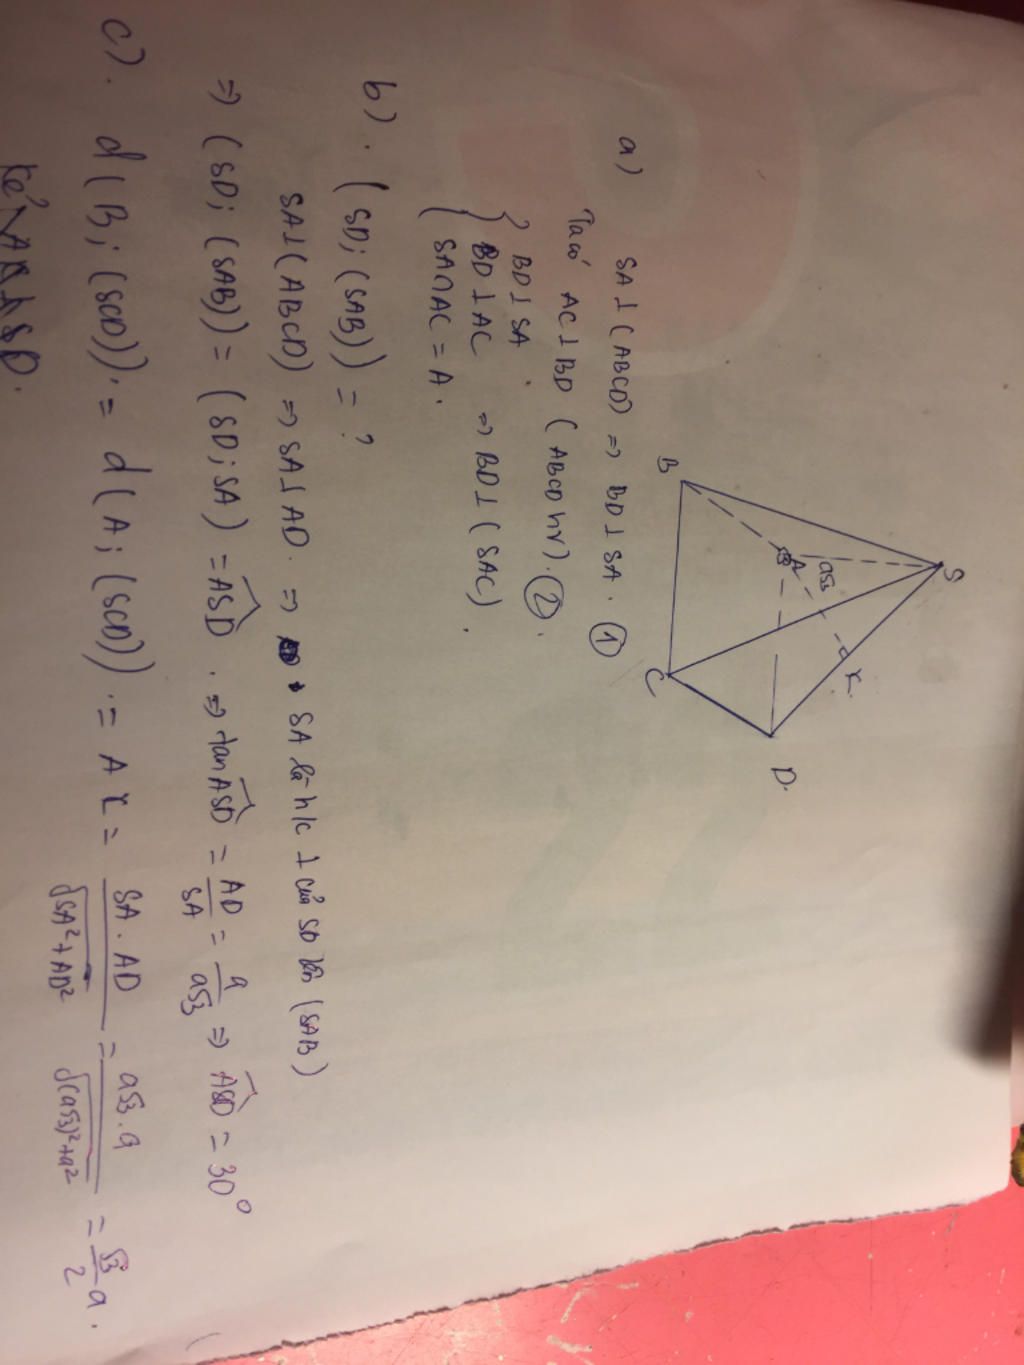 S
a√3
A
K
B
C
D.
a) SA⊥(ABCD) ⇒ BD⊥SA. ①
Ta có AC⊥BD (ABCD hv). ②.
{ BD⊥SA
BD⊥AC ⇒ BD⊥(SAC).
SA∩AC = A.
b). (SD; (SAB)) = ?
SA⊥(ABCD) ⇒ SA⊥AD. ⇒ SA là h/c ⊥ của SD lên (SAB)
⇒ (SD; (SAB)) = (SD; SA) = ASD. ⇒ tan ASD = AD/SA = a/a√3 ⇒ ASD = 30°
c). d(B; (SCD)). = d(A; (SCD)). = AK = SA.AD/√SA²+AD² = a√3.a/√(a√3)²+a² = √3/2 a.
Kẻ AK⊥SD.